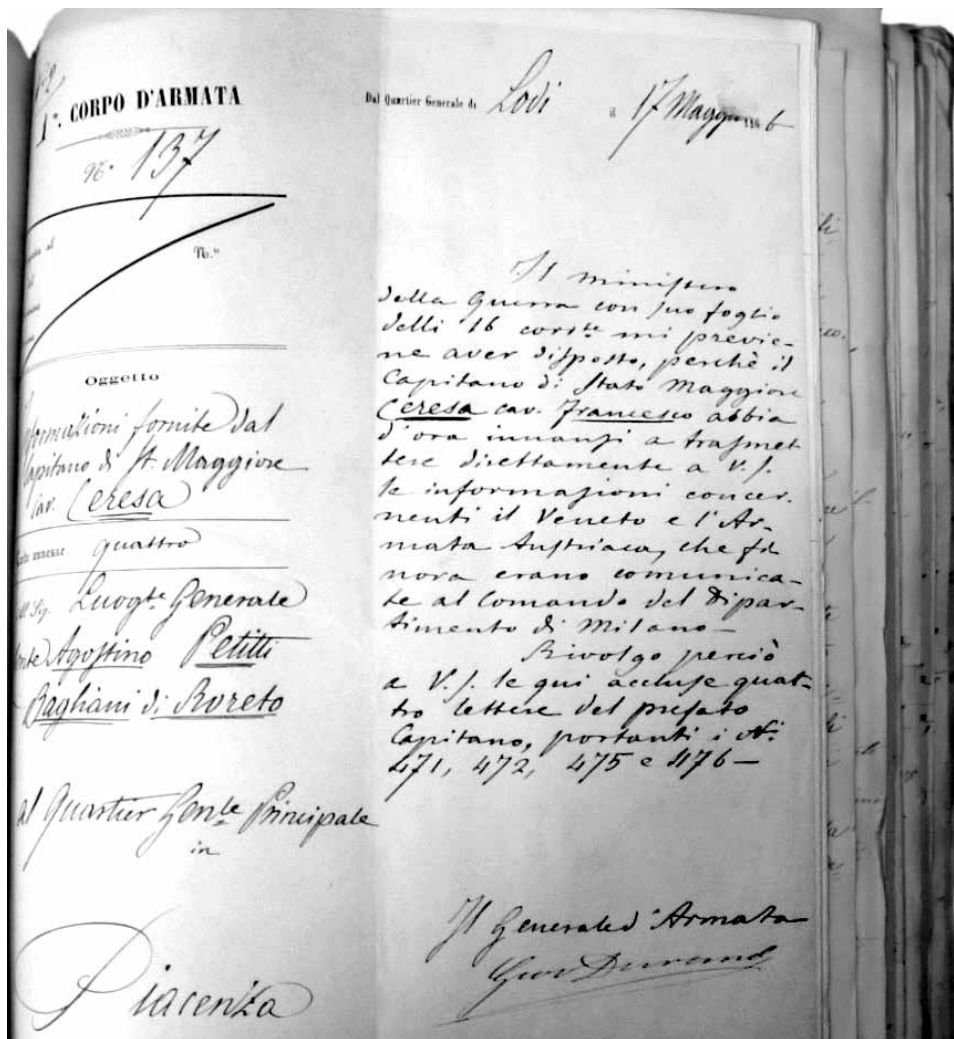 1°. CORPO D'ARMATA
N.° 137
N.°
Oggetto
Informazioni fornite dal
Capitano di St. Maggiore
Cav. Ceresa
Carte annesse quattro
Al Sig. Luogte. Generale
Conte Agostino Petitti
Bagliani di Roreto
al Quartier Genle Principale
in
Piacenza
Dal Quartier Generale di Lodi il 17 Maggio 1866
Il Ministero
della Guerra con suo foglio
delli 16 corrte mi previe-
ne aver disposto, perchè il
Capitano di Stato Maggiore
Ceresa cav. Francesco abbia
d'ora innanzi a trasmet
tere direttamente a V.S.
le informazioni concer-
nenti il Veneto e l'Ar-
mata Austriaca, che fi
nora erano comunica-
te al Comando del Dipar-
timento di Milano-
Rivolgo perciò
a V.S. le qui accluse quat-
tro lettere del prefato
Capitano, portanti i Ni
471, 472, 475 e 476-
Il Generale d'Armata
Durando